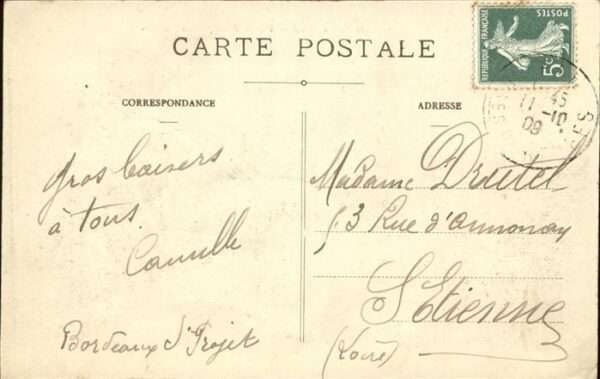 CARTE POSTALE
CORRESPONDANCE
ADRESSE
RÉPUBLIQUE FRANÇAISE
POSTES
5c
11 45
-10
09
Gros baisers
à tous
Camille
Bordeaux
Madame Drutel
53 Rue d'Annonay
St Etienne
(Loire)